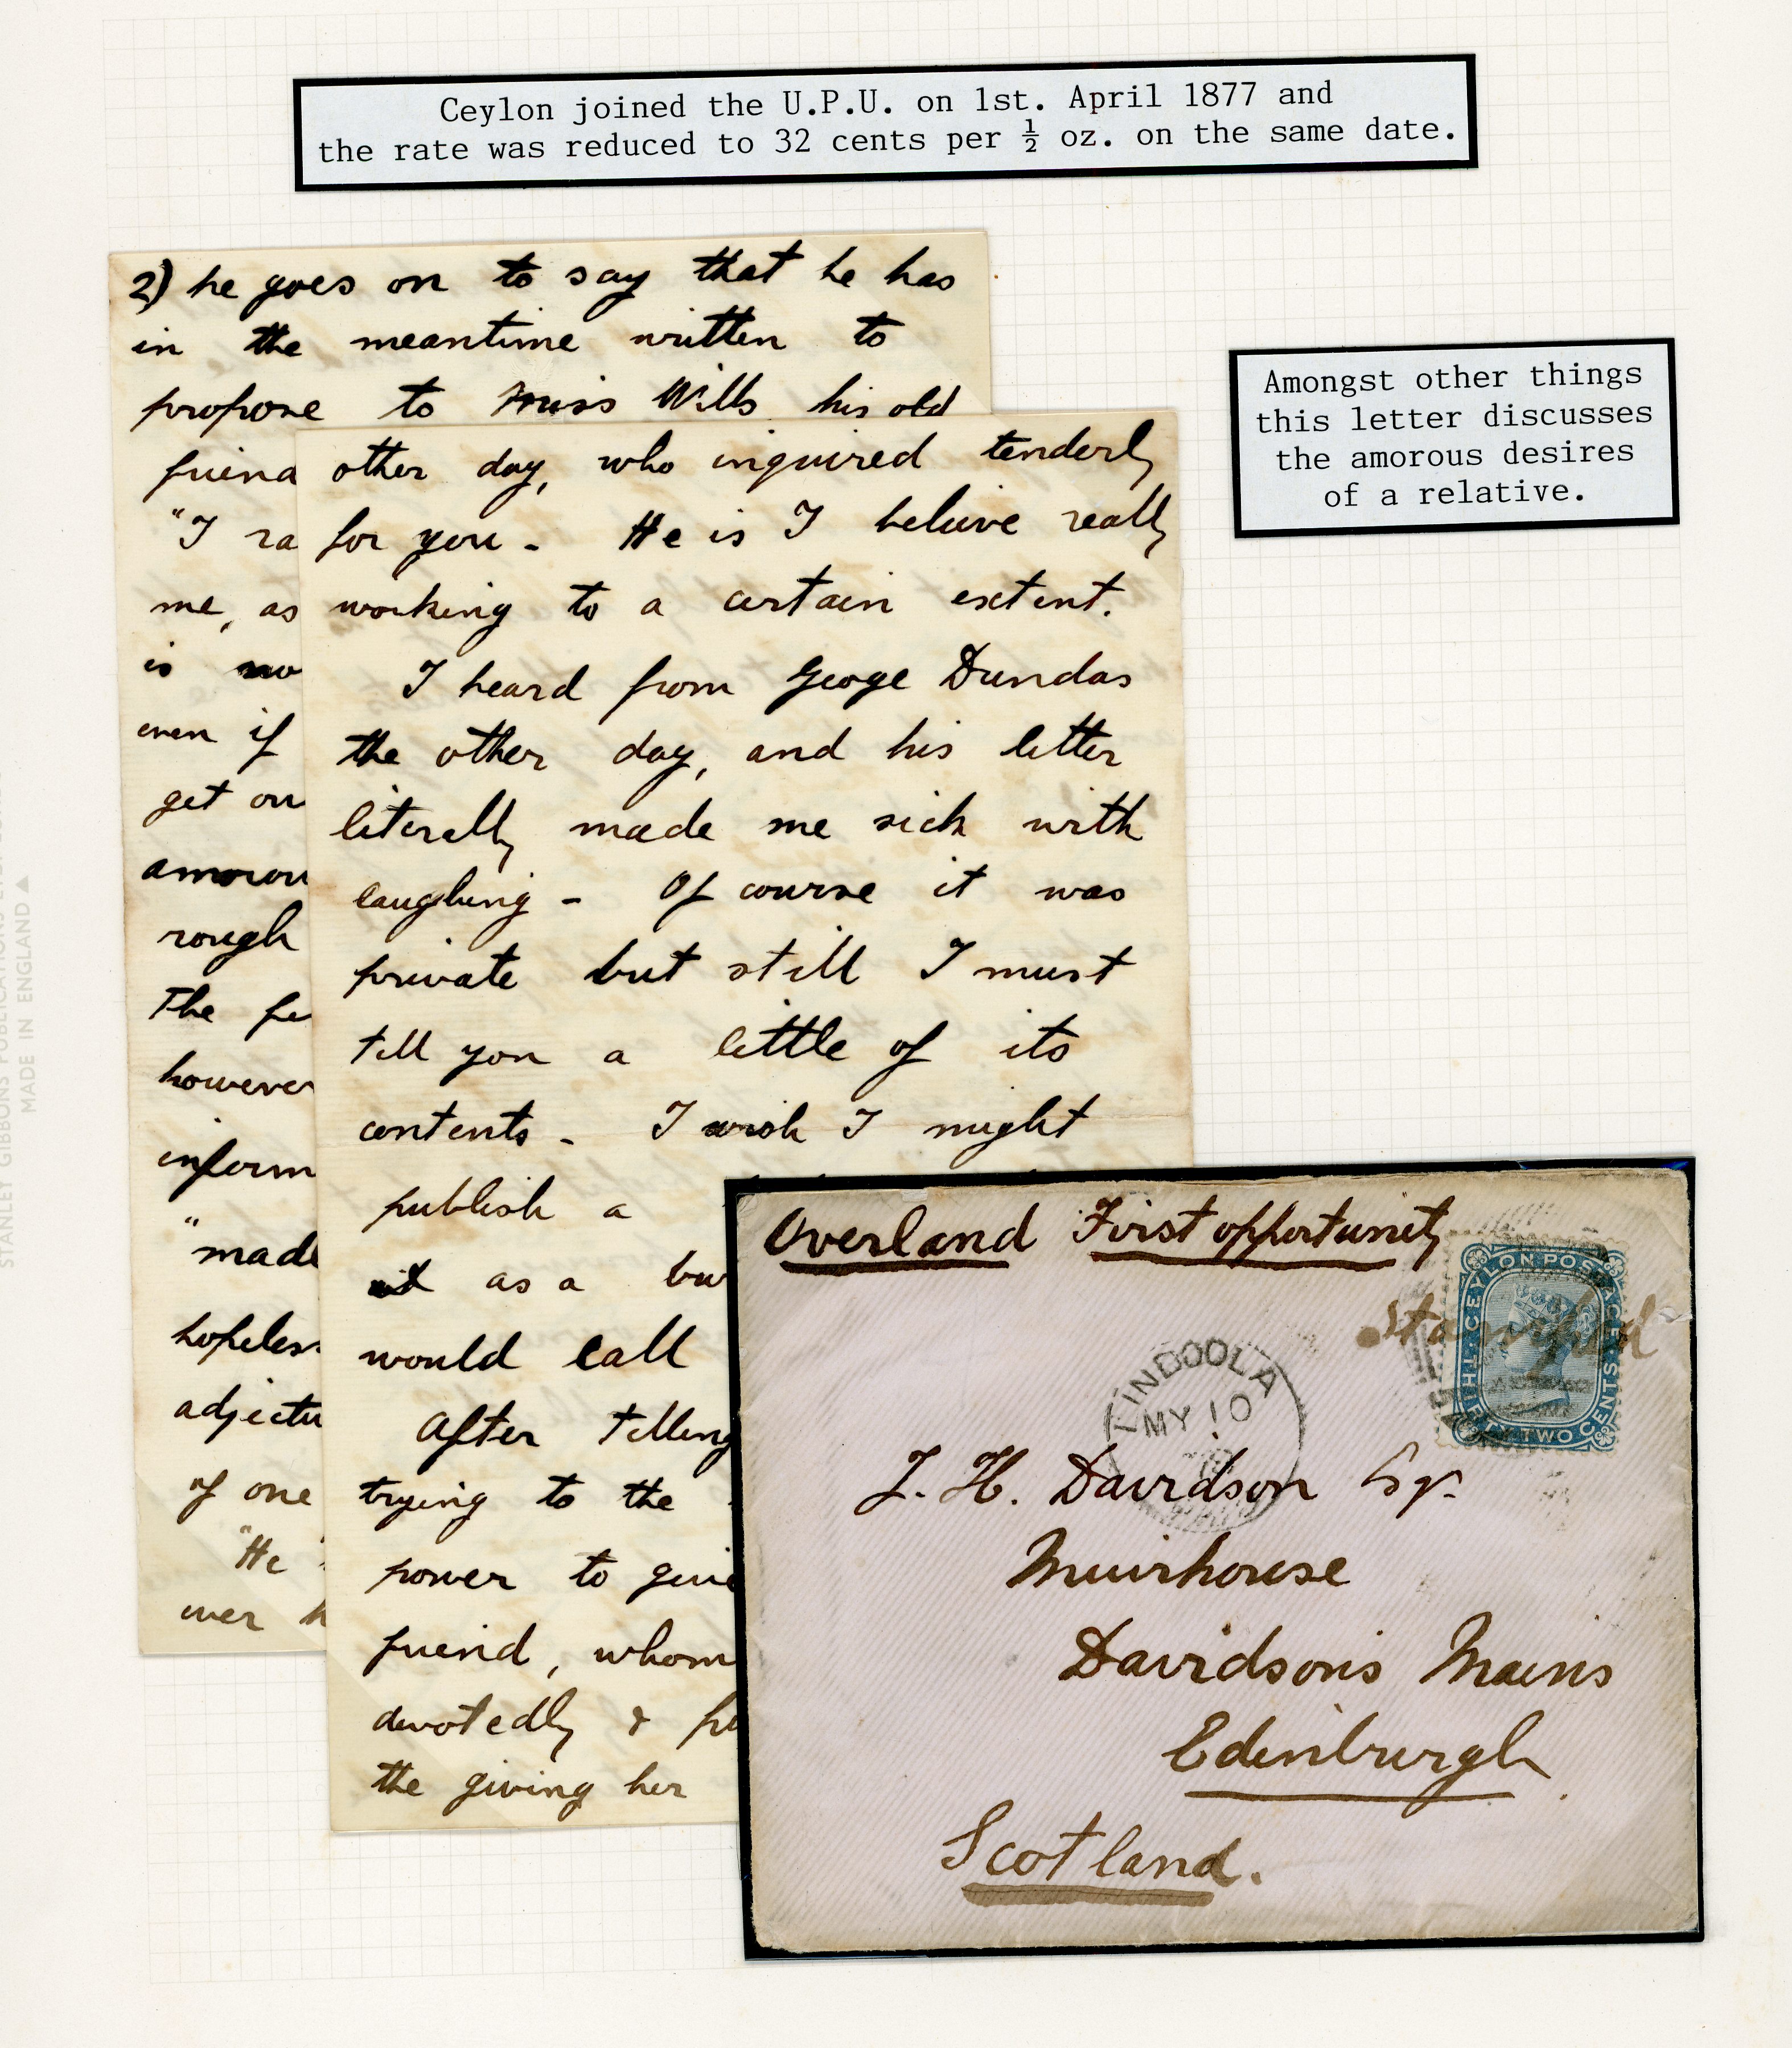 Ceylon joined the U.P.U. on 1st. April 1877 and
the rate was reduced to 32 cents per ½ oz. on the same date.
Amongst other things
this letter discusses
the amorous desires
of a relative.
2) he goes on to say that he has
in the meantime written to
propose to Miss Wills his old
friend
"I ra
me, as
is no
even if
get on
amorou
rough
The fe
however
inform
"made
hopeless
adjectu
of one
"He
over h
other day, who inquired tenderly
for you - He is I believe really
working to a certain extent.
I heard from George Dundas
the other day, and his letter
literally made me sick with
laughing - Of course it was
private but still I must
tell you a little of its
contents - I wish I might
publish a
it as a bu
would call
After telling
trying to the
power to give
friend, whom
devotedly & fu
the giving her
Overland First opportunity
Stamped
CEYLON POSTAGE
THIRTY TWO CENTS
LINDOOLA
MY 10
J. H. Davidson Esqr.
Muirhouse
Davidsons Mains
Edinburgh
Scotland.
STANLEY GIBBONS PUBLICATIONS LTD.
MADE IN ENGLAND